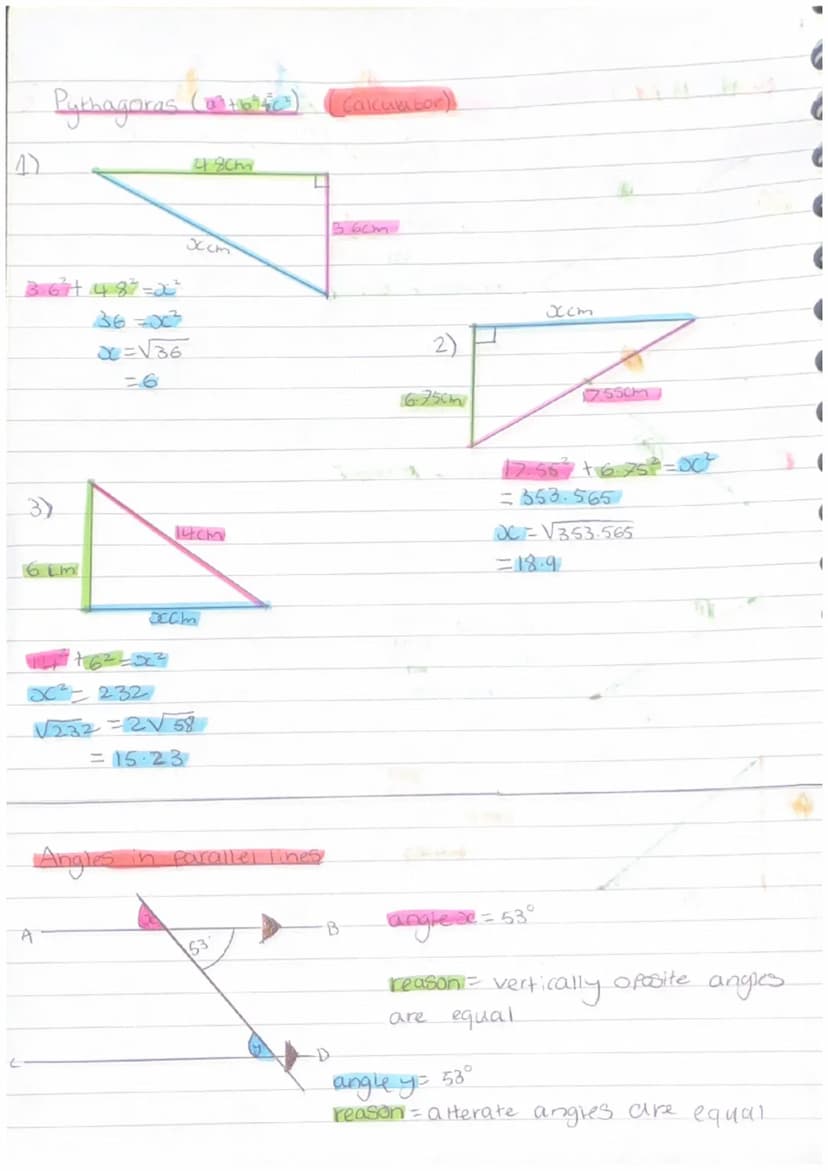 Pythagoras (a²+b²=c²) (Calculator)
1)
4.8cm
3.6cm
xcm
3.6²+4.8²=x²
36=x²
x=√36
=6
2)
xcm
6.75cm
17.55cm
17.55²+6.75²=x²
=353.565
x=√353.565
=18.9
3)
14cm
6cm
xcm
14²+6²=x²
x²=232
√232=2√58
=15.23
Angles in parallel lines
x
A
B
53°
angle x=53°
reason= vertically oposite angles
are equal
y
C
D
angle y=53°
reason=alterate angles are equal